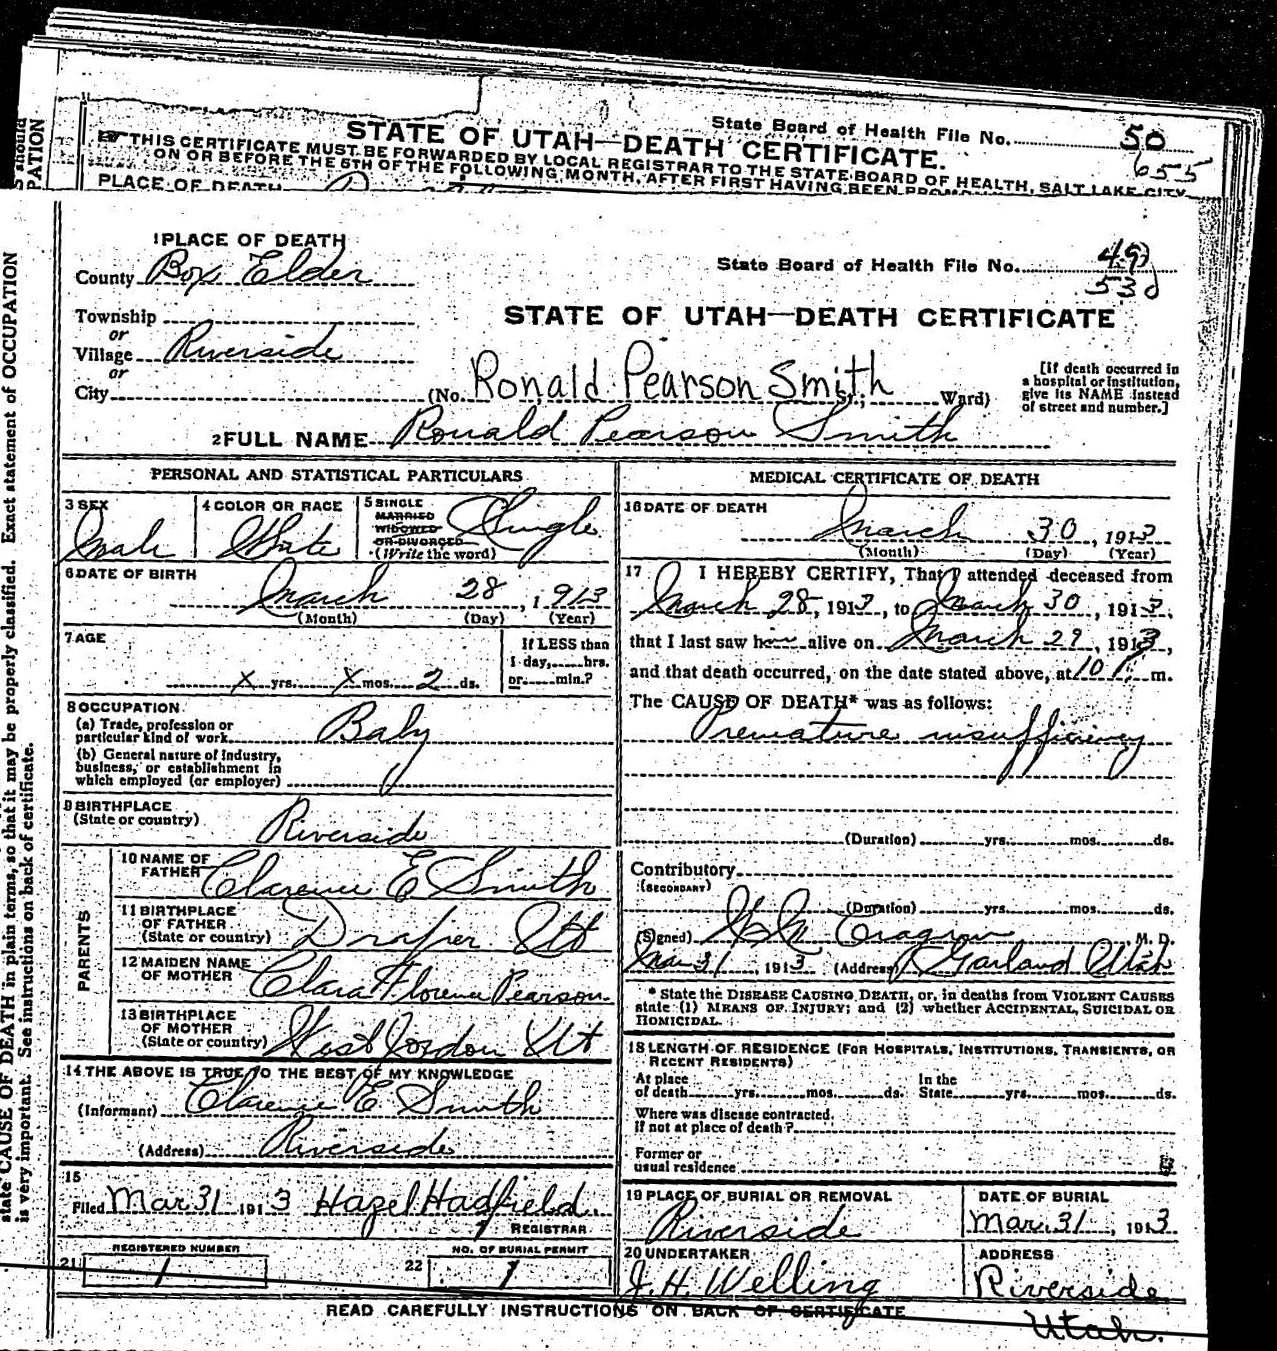 State Board of Health File No. 50
655
STATE OF UTAH—DEATH CERTIFICATE.
THIS CERTIFICATE MUST BE FORWARDED BY LOCAL REGISTRAR TO THE STATE BOARD OF HEALTH, SALT LAKE CITY,
ON OR BEFORE THE 5TH OF THE FOLLOWING MONTH, AFTER FIRST HAVING BEEN
PLACE OF DEATH
should
PATION
state CAUSE OF DEATH in plain terms, so that it may be properly classified. Exact statement of OCCUPATION
is very important. See instructions on back of certificate.
1 PLACE OF DEATH
County Box Elder
State Board of Health File No. 49
530
Township
or
Village Riverside
or
City
STATE OF UTAH—DEATH CERTIFICATE
(No. Ronald Pearson Smith St.; Ward)
[If death occurred in
a hospital or institution,
give its NAME instead
of street and number.]
2 FULL NAME Ronald Pearson Smith
PERSONAL AND STATISTICAL PARTICULARS
3 SEX
Male
4 COLOR OR RACE
White
5 SINGLE
MARRIED
WIDOWED
OR DIVORCED
(Write the word)
Single
6 DATE OF BIRTH
March 28, 1913
(Month) (Day) (Year)
7 AGE
X yrs. X mos. 2 ds.
If LESS than
1 day, hrs.
or min.?
8 OCCUPATION
(a) Trade, profession or
particular kind of work Baby
(b) General nature of industry,
business, or establishment in
which employed (or employer)
9 BIRTHPLACE
(State or country)
Riverside
PARENTS
10 NAME OF
FATHER Clarence E Smith
11 BIRTHPLACE
OF FATHER
(State or country) Draper Ut
12 MAIDEN NAME
OF MOTHER Clara Florence Pearson
13 BIRTHPLACE
OF MOTHER
(State or country) West Jordon Ut
14 THE ABOVE IS TRUE TO THE BEST OF MY KNOWLEDGE
(Informant) Clarence E Smith
(Address) Riverside
15
Filed Mar 31 1913 Hazel Hadfield.
REGISTRAR
REGISTERED NUMBER
21 1
NO. OF BURIAL PERMIT
22 1
MEDICAL CERTIFICATE OF DEATH
16 DATE OF DEATH
March 30, 1913
(Month) (Day) (Year)
17 I HEREBY CERTIFY, That I attended deceased from
March 28, 1913, to March 30, 1913,
that I last saw him alive on March 29, 1913,
and that death occurred, on the date stated above, at 10 P. m.
The CAUSE OF DEATH* was as follows:
Premature insufficiency
(Duration) yrs. mos. ds.
Contributory
(SECONDARY)
(Duration) yrs. mos. ds.
(Signed) M. D.
Mar 31, 1913 (Address) Garland Utah
* State the DISEASE CAUSING DEATH, or, in deaths from VIOLENT CAUSES
state (1) MEANS OF INJURY; and (2) whether ACCIDENTAL, SUICIDAL OR
HOMICIDAL.
18 LENGTH OF RESIDENCE (FOR HOSPITALS, INSTITUTIONS, TRANSIENTS, OR
RECENT RESIDENTS)
At place
of death yrs. mos. ds.
In the
State yrs. mos. ds.
Where was disease contracted.
If not at place of death?
Former or
usual residence
19 PLACE OF BURIAL OR REMOVAL
Riverside
DATE OF BURIAL
Mar. 31, 1913
20 UNDERTAKER
J. H. Welling
ADDRESS
Riverside
Utah.
READ CAREFULLY INSTRUCTIONS ON BACK OF CERTIFICATE